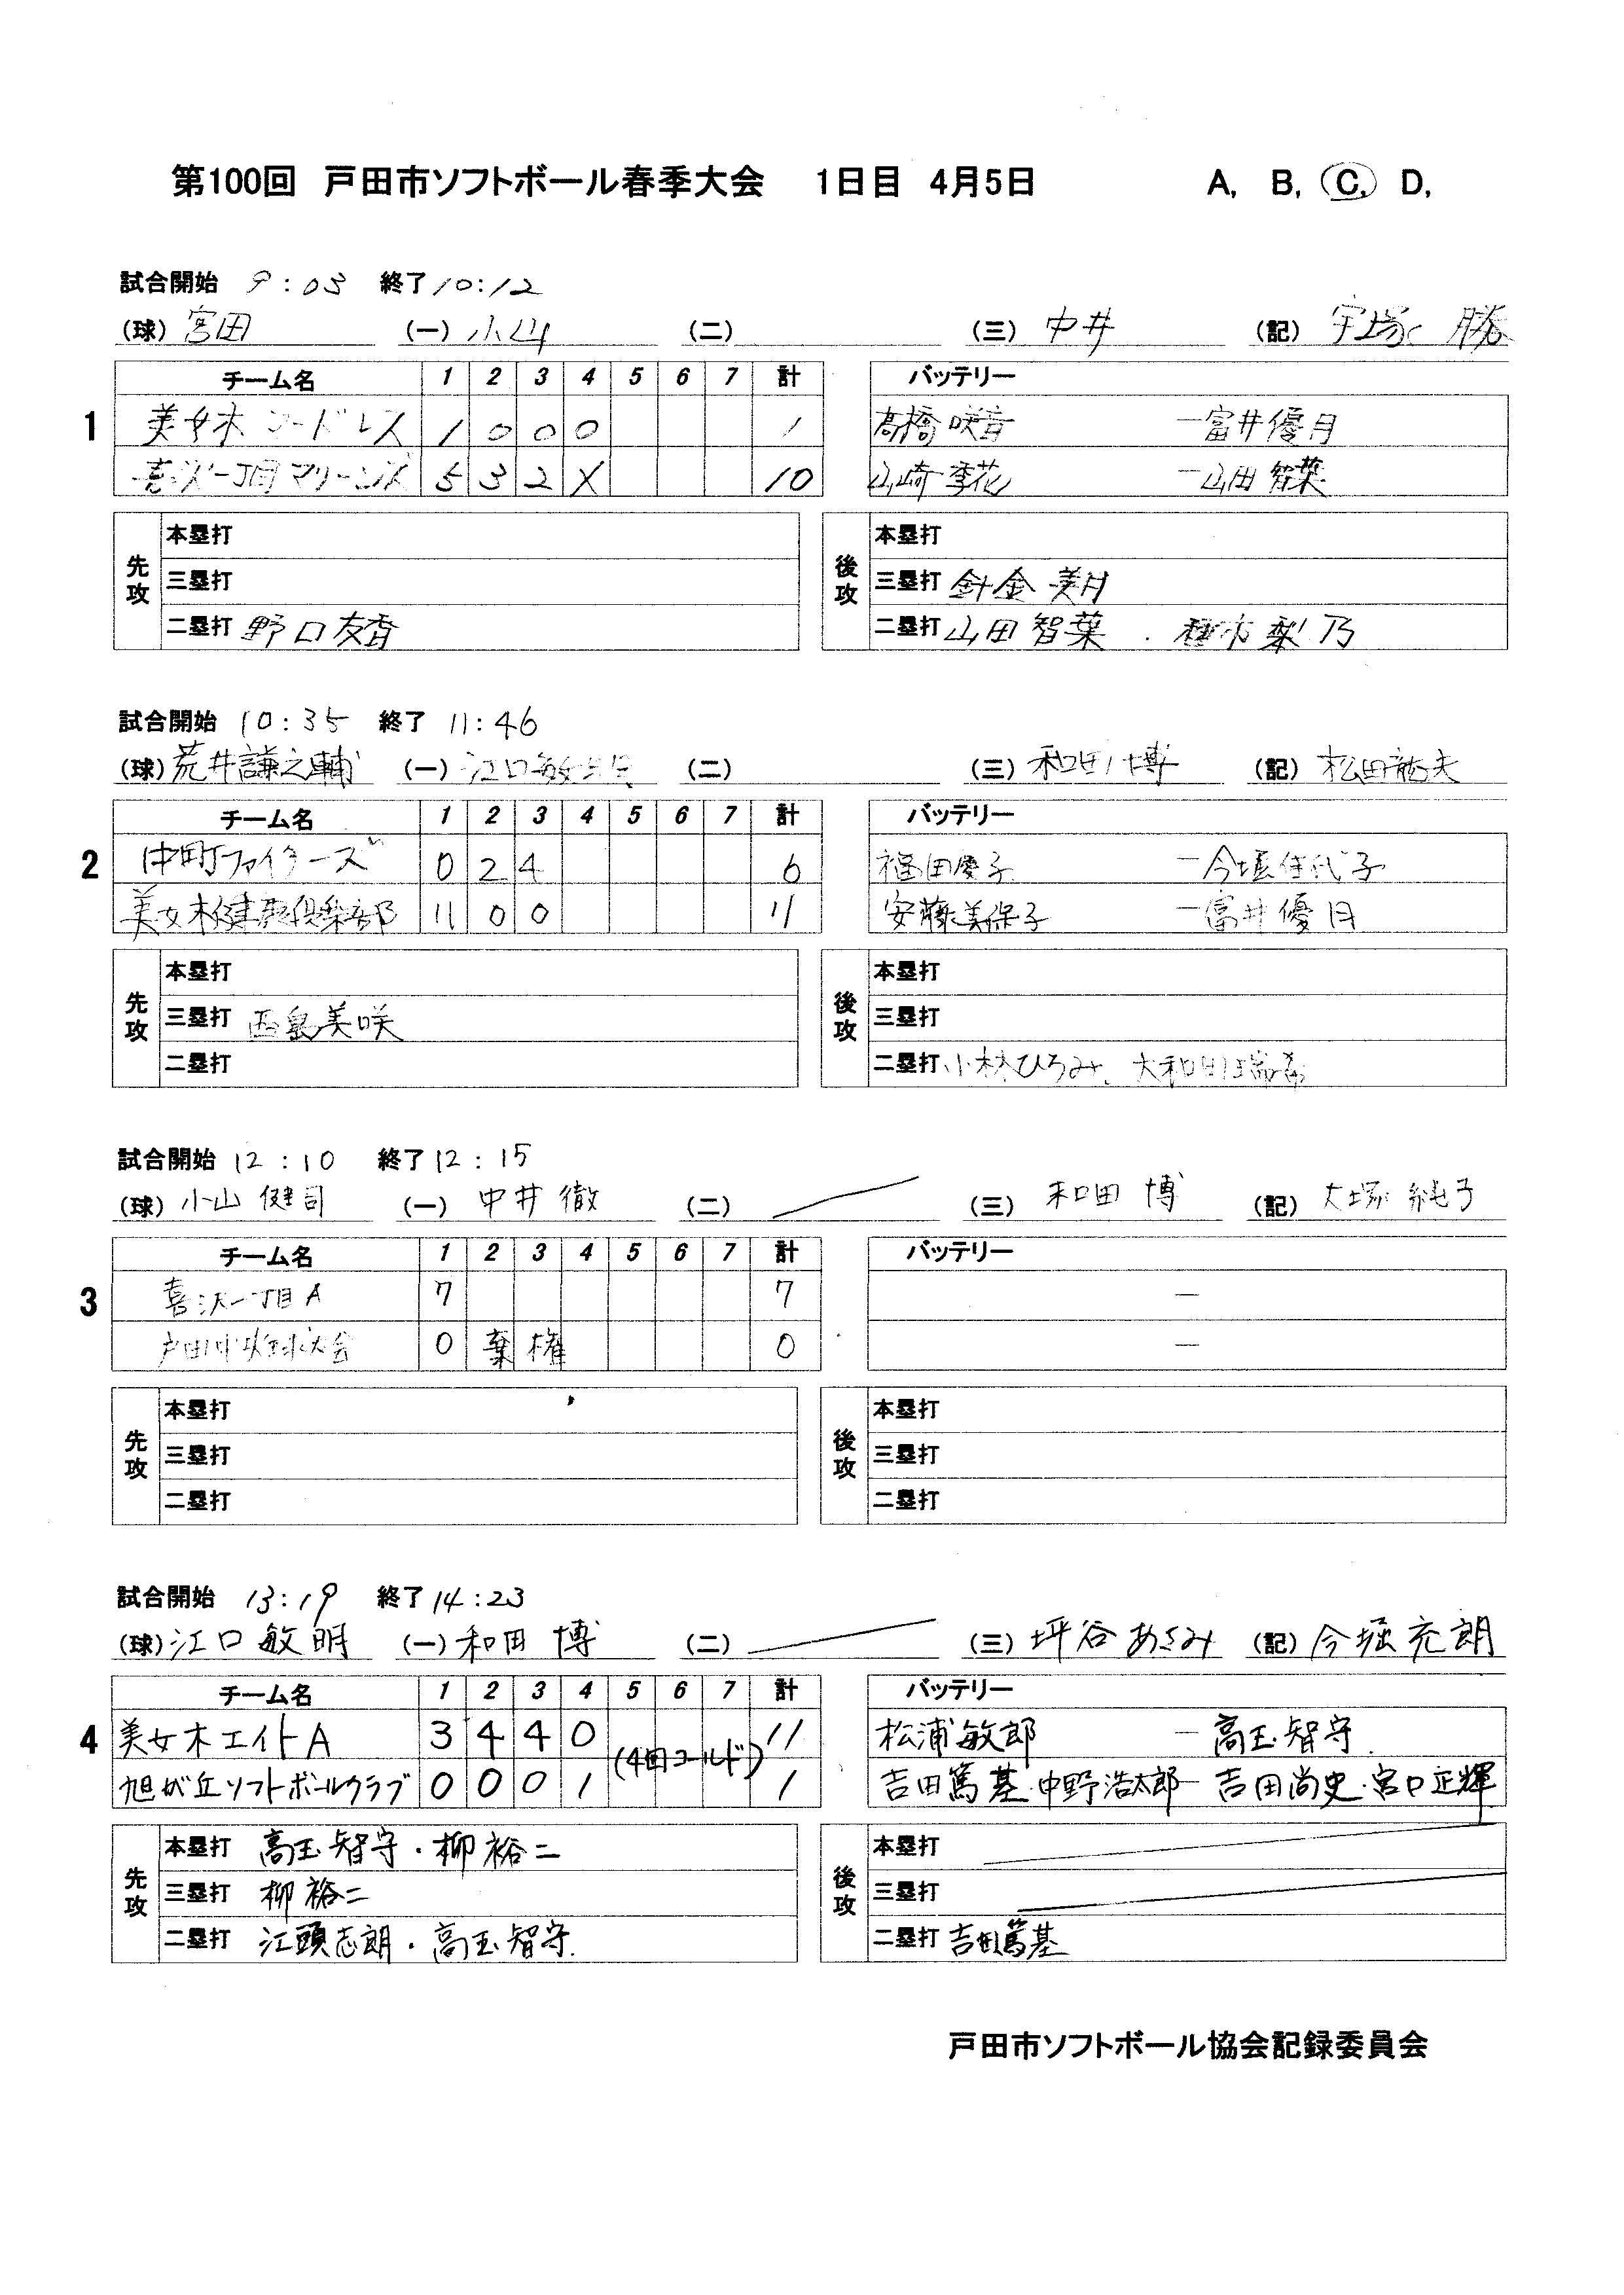 第100回 戸田市ソフトボール春季大会 1日目 4月5日 A, B, C, D,
試合開始 9:03 終了 10:12
(球) 宮田 (一) 小山 (二) (三) 中井 (記) 宇塚 勝
チーム名 1 2 3 4 5 6 7 計 バッテリー
1
美女木 ードレス 1 0 0 0 1 高橋咲音 ー富井優月
喜沢一丁目マリーンズ 5 3 2 X 10 山崎季花 ー山田智葉
先攻 後攻
本塁打 本塁打
三塁打 三塁打 針金美月
二塁打 野口友香 二塁打 山田智葉 . 梨乃
試合開始 10:35 終了 11:46
(球) 荒井謙之輔 (一) 江口敏 (二) (三) 和田 博 (記) 松田祐夫
チーム名 1 2 3 4 5 6 7 計 バッテリー
2
仲町ファイターズ 0 2 4 6 福田優子 ー今堀佳代子
美女木健康倶楽部 11 0 0 11 安藤美保子 ー富井優月
先攻 後攻
本塁打 本塁打
三塁打 西島美咲 三塁打
二塁打 二塁打 小林ひろみ、大和田
試合開始 12:10 終了 12:15
(球) 小山 健司 (一) 中井 徹 (二) (三) 和田 博 (記) 大塚 純子
チーム名 1 2 3 4 5 6 7 計 バッテリー
3
喜沢一丁目A 7 7 ー
戸田 球 会 0 棄権 0 ー
先攻 後攻
本塁打 本塁打
三塁打 三塁打
二塁打 二塁打
試合開始 13:19 終了 14:23
(球) 江口敏明 (一) 和田 博 (二) (三) 坪谷あさみ (記) 今堀充朗
チーム名 1 2 3 4 5 6 7 計 バッテリー
4
美女木エイトA 3 4 4 0 11 松浦敏郎 ー 高玉智守
(4回コールド)
旭が丘ソフトボールクラブ 0 0 0 1 1 吉田篤基・中野浩太郎ー吉田尚史・宮口正輝
先攻 後攻
本塁打 高玉智守・柳裕二 本塁打
三塁打 柳裕二 三塁打
二塁打 江頭志朗・高玉智守 二塁打 吉田篤基
戸田市ソフトボール協会記録委員会